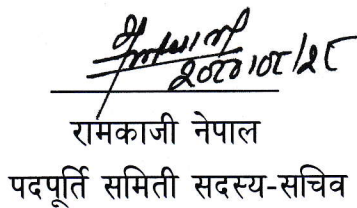 २०८०।०८/२८
रामकाजी नेपाल
पदपूर्ति समिती सदस्य-सचिव